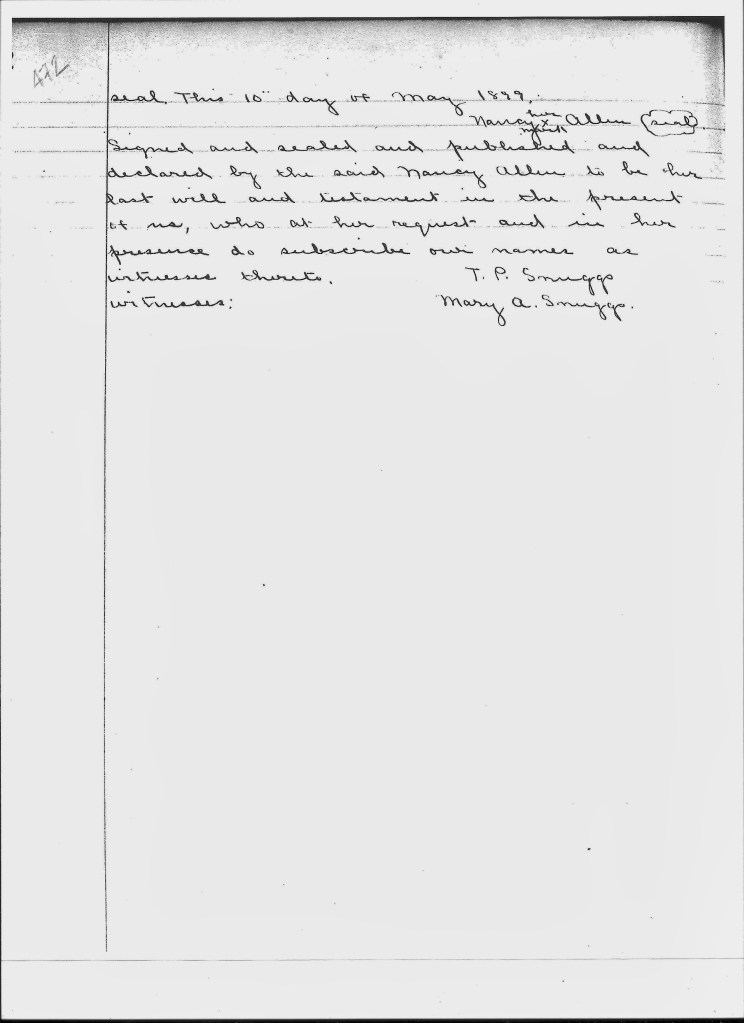 472
seal. This 10" day of May 1899.
her
Nancy x Allen (seal)
mark
Signed and sealed and published and
declared by the said Nancy Allen to be her
last will and testament in the present
of us, who at her request and in her
presence do subscribe our names as
witnesses thereto. T. P. Snuggs
witnesses: Mary A. Snuggs.